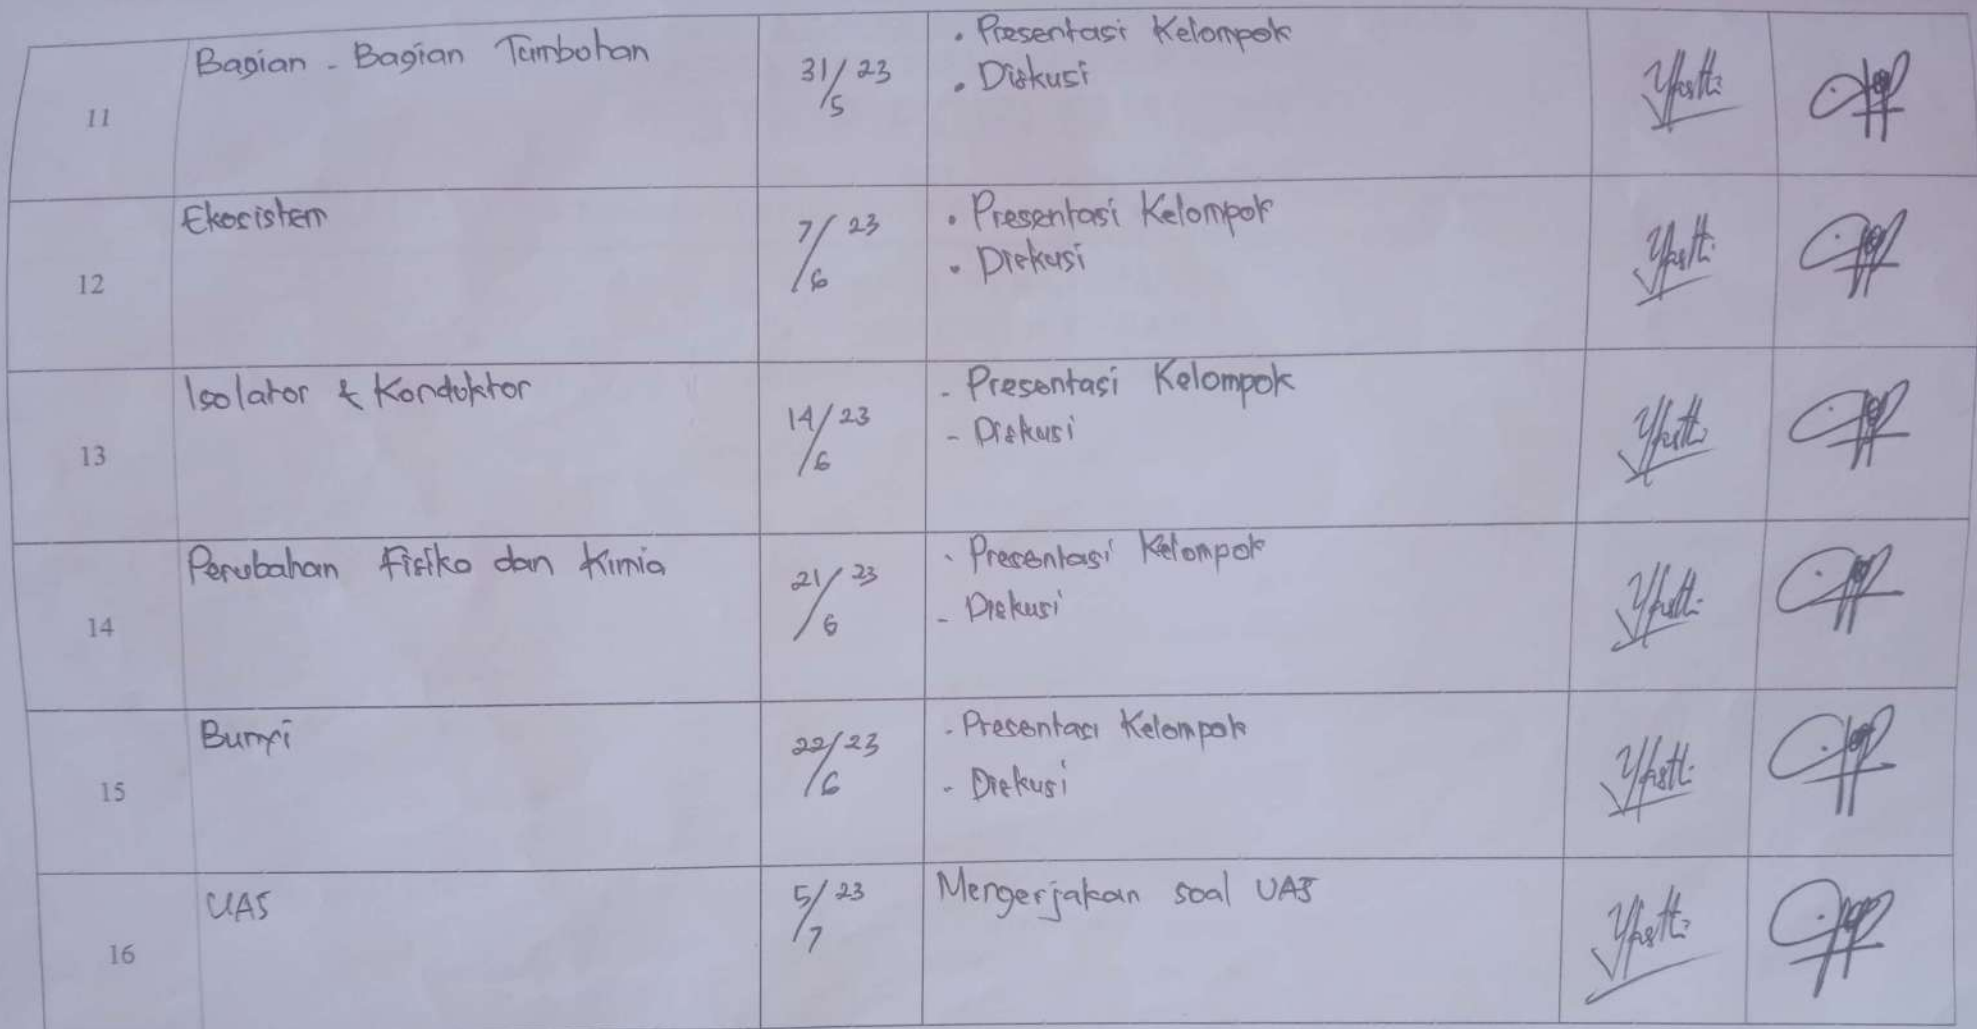 11
Bagian - Bagian Tumbuhan
31/5 23
• Presentasi Kelompok
• Diskusi
12
Ekosistem
7/6 23
• Presentasi Kelompok
• Diskusi
13
Isolator & Konduktor
14/6 23
- Presentasi Kelompok
- Diskusi
14
Perubahan Fisika dan Kimia
21/6 23
- Presentasi Kelompok
- Diskusi
15
Bumi
22/6 23
- Presentasi Kelompok
- Diskusi
16
UAS
5/7 23
Mengerjakan soal UAS